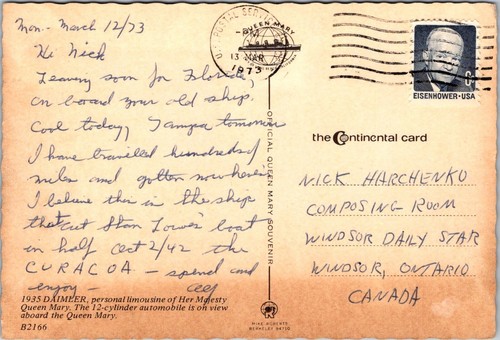 Mon - March 12/73
Hi Nick
Leaving soon for Florida,
on board your old ship.
Cool today, Tampa tomorrow
I have travelled hundreds of
miles and gotten nowhere!
I believe this is the ship
that cut Stan Lowe's boat
in half Oct 2/42 the
CURACOA - spend and
enjoy -
1935 DAIMLER, personal limousine of Her Majesty
Queen Mary. The 12-cylinder automobile is on view
aboard the Queen Mary.
B2166
OFFICIAL QUEEN MARY SOUVENIR
MIKE ROBERTS
BERKELEY 94710
U.S. POSTAL SERVICE
QUEEN MARY
13 MAR
1973
6¢
EISENHOWER·USA
the Continental card
NICK HARCHENKO
COMPOSING ROOM
WINDSOR DAILY STAR
WINDSOR, ONTARIO
CANADA